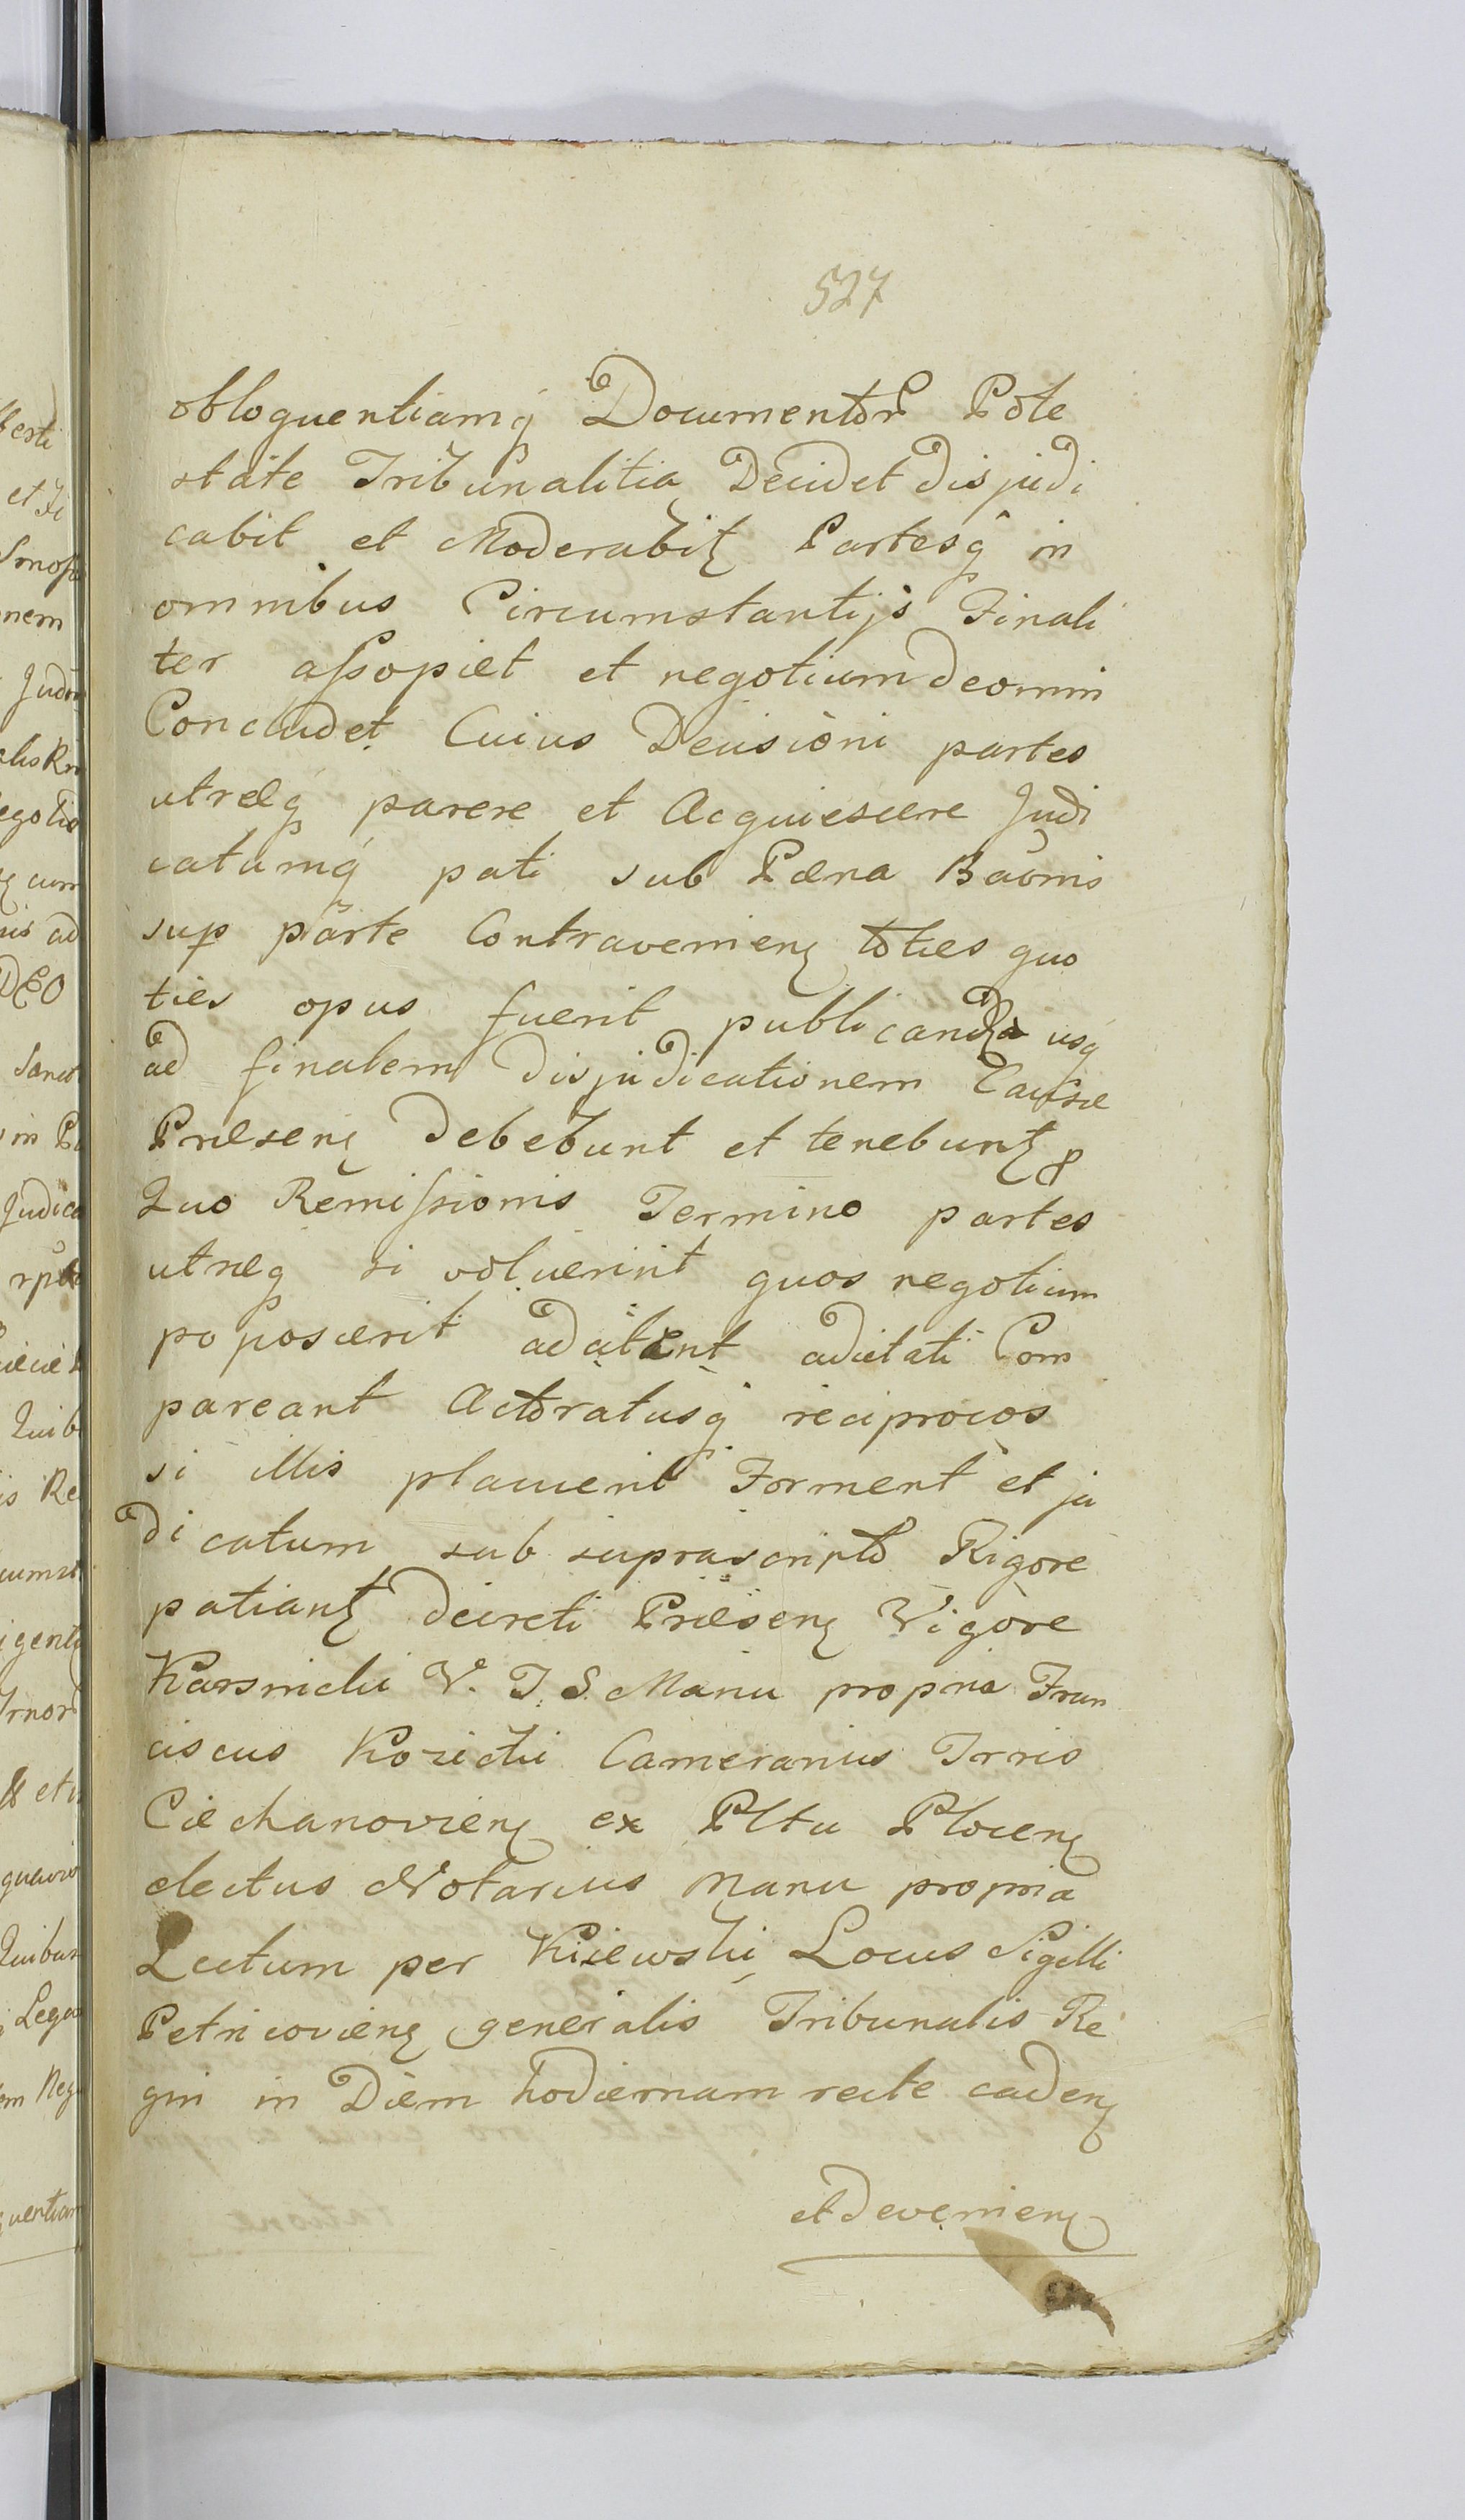 527
obloquentiamq Documentor Pote
state Tribunalitia Decidet disjudi
cabit et Moderabit Partesq in
omnibus Circumstantijs Finali
ter assopiet et negotium de omni
Concludet Cuius Decisioni partes
utræq parere et Acquiescere Judi
catumq pati sub Pæna Baomis
sup parte Contravenien toties quo
ties opus fuerit publicanda usq
ad finalem disjudicationem Causæ
Præsen debebunt et tenebunt
Quo Remissionis Termino partes
utræq si voluerint quos negotium
poposcerit adcitent adcitati Com
pareant Actoratusq reciprocos
si illis placuerit Forment et ju
dicatum sub suprascripto Rigore
patiant decreti Præsen Vigore
Karsnicki V. T. S. Manu propria Fran
ciscus Kozicki Camerarius Trris
Ciechanovien ex Pltu Plocen
electus Notarius Manu propria
Lectum per Kijewski Locus Sigilli
Petricovien generalis Tribunalis Re
gni in Diem hodiernam recte caden
et devenien